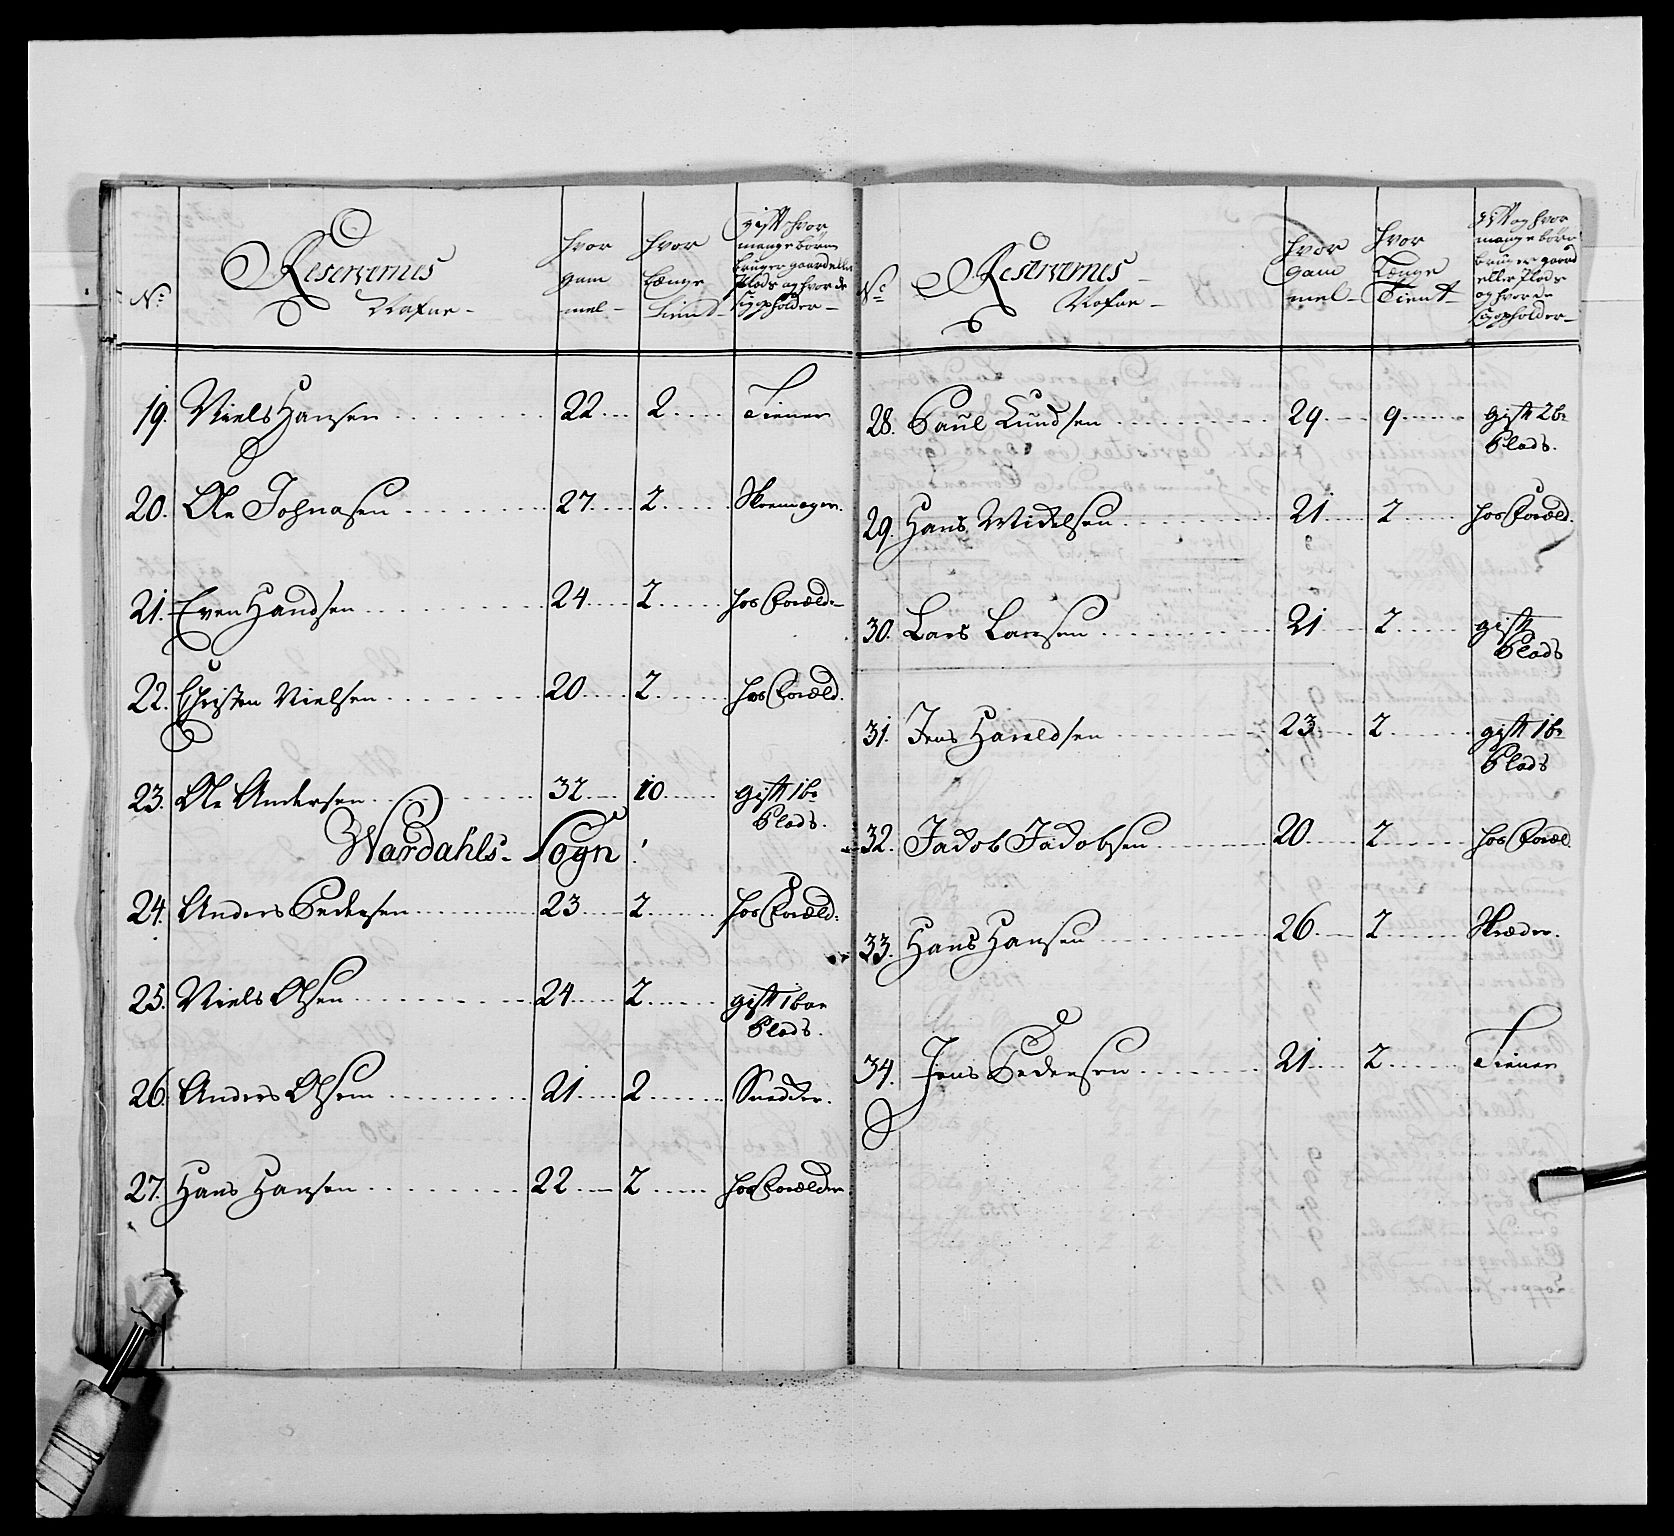 No
Reservernes
Nafne
hvor
gam
mel
hvor
længe
tient
gift hvor
mange børn
bruger gaard eller
Plads og hvor de
sig opholder
19. Niels Hansen 22 2 Tiener
20. Ole Johnasen 27 2 Skoemager.
21. Even Handsen 24 2 hos Foræld:
22. Christen Nielsen 20 2 hos Foræld.
23. Ole Andersen 32 10 gift 1 b:
Plads.
Wardahls Sogn
24. Anders Pedersen 23 2 hos Foræld:
25. Niels Olsen 24 2 gift 1 barn
Plads.
26. Anders Olsen 21 2 Snedker.
27. Hans Hansen 22 2 hos Forælder
No
Reservernes
Nafne
hvor
gam
mel
hvor
længe
tient
gift og hvor
mange børn
bruger gaard
eller Plads
og hvor de
sig opholder
28. Paul Knudsen 29 9 gift 2 b:
Plads.
29. Hans Mickelsen 21 2 hos Foræld.
30. Lars Larsen 21 2 gift
Plads
31. Jens Haraldsen 23 2 gift 1 b:
Plads
32. Jacob Jacobsen 20 2 hos Foræl.
33. Hans Hansen 26 2 Skræder.
34. Jens Pedersen 21 2 Tiener